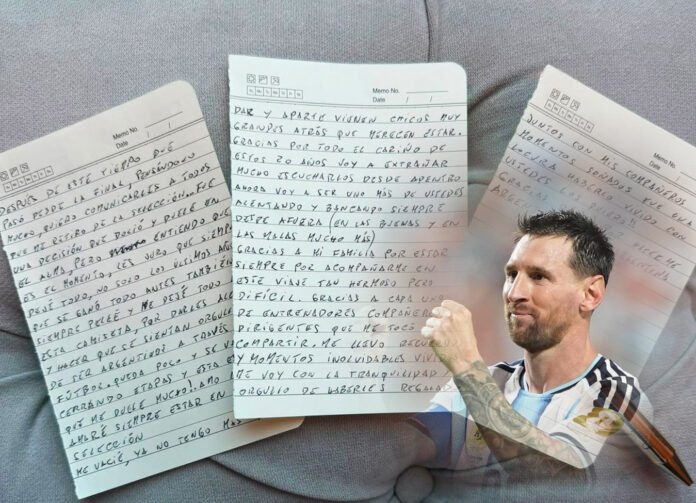 Memo No.
Date / /
DESPUES DE ESTE TIEMPO QUE
PASÓ DESDE LA FINAL, PENSÁNDOLO
MUCHO, QUIERO COMUNICARLES A TODOS
QUE ME RETIRO DE LA SELECCIÓN. FUE
UNA DECISIÓN QUE DOLIÓ Y DUELE EN
EL ALMA PERO ENTIENDO QUE
ES EL MOMENTO. LES JURO QUE SIEMPRE
DEJÉ TODO, NO SOLO LOS ÚLTIMOS AÑOS
QUE SE GANÓ TODO ANTES TAMBIÉN
SIEMPRE PELEÉ Y ME DEJÉ TODO
ESTA CAMISETA, POR DARLES
Y HACER QUE SE SIENTAN
DE SER ARGENTINOS A TRAVÉS
FÚTBOL. QUEDA POCO Y SE
CERRANDO ETAPAS Y ESTA
QUE ME DUELE MUCHO!! AMO
AMARÉ SIEMPRE ESTAR EN
SELECCIÓN
ME VACIÉ, YA NO TENGO MAS
Memo No.
Date / /
DAR Y APARTE VIENEN CHICOS MUY
GRANDES ATRÁS QUE MERECEN ESTAR.
GRACIAS POR TODO EL CARIÑO DE
ESTOS 20 AÑOS VOY A EXTRAÑAR
MUCHO ESCUCHARLOS DESDE ADENTRO
AHORA VOY A SER UNO MÁS DE USTEDES
ALENTANDO Y BANCANDO SIEMPRE
DESDE AFUERA (EN LAS BUENAS Y EN
LAS MALAS MUCHO MÁS)
GRACIAS A MI FAMILIA POR ESTAR
SIEMPRE POR ACOMPAÑARME EN
ESTE VIAJE TAN HERMOSO PERO
DIFÍCIL. GRACIAS A CADA UNO
DE ENTRENADORES COMPAÑEROS
DIRIGENTES QUE ME TOCÓ
COMPARTIR. ME LLEVO
Y MOMENTOS INOLVIDABLES
ME VOY CON LA TRANQUILIDAD Y
ORGULLO DE HABERLES REGALADO
Memo No.
Date / /
JUNTOS CON MIS COMPAÑEROS
MOMENTOS SOÑADOS FUE UNA
LOCURA HABERLO VIVIDO CON
USTEDES